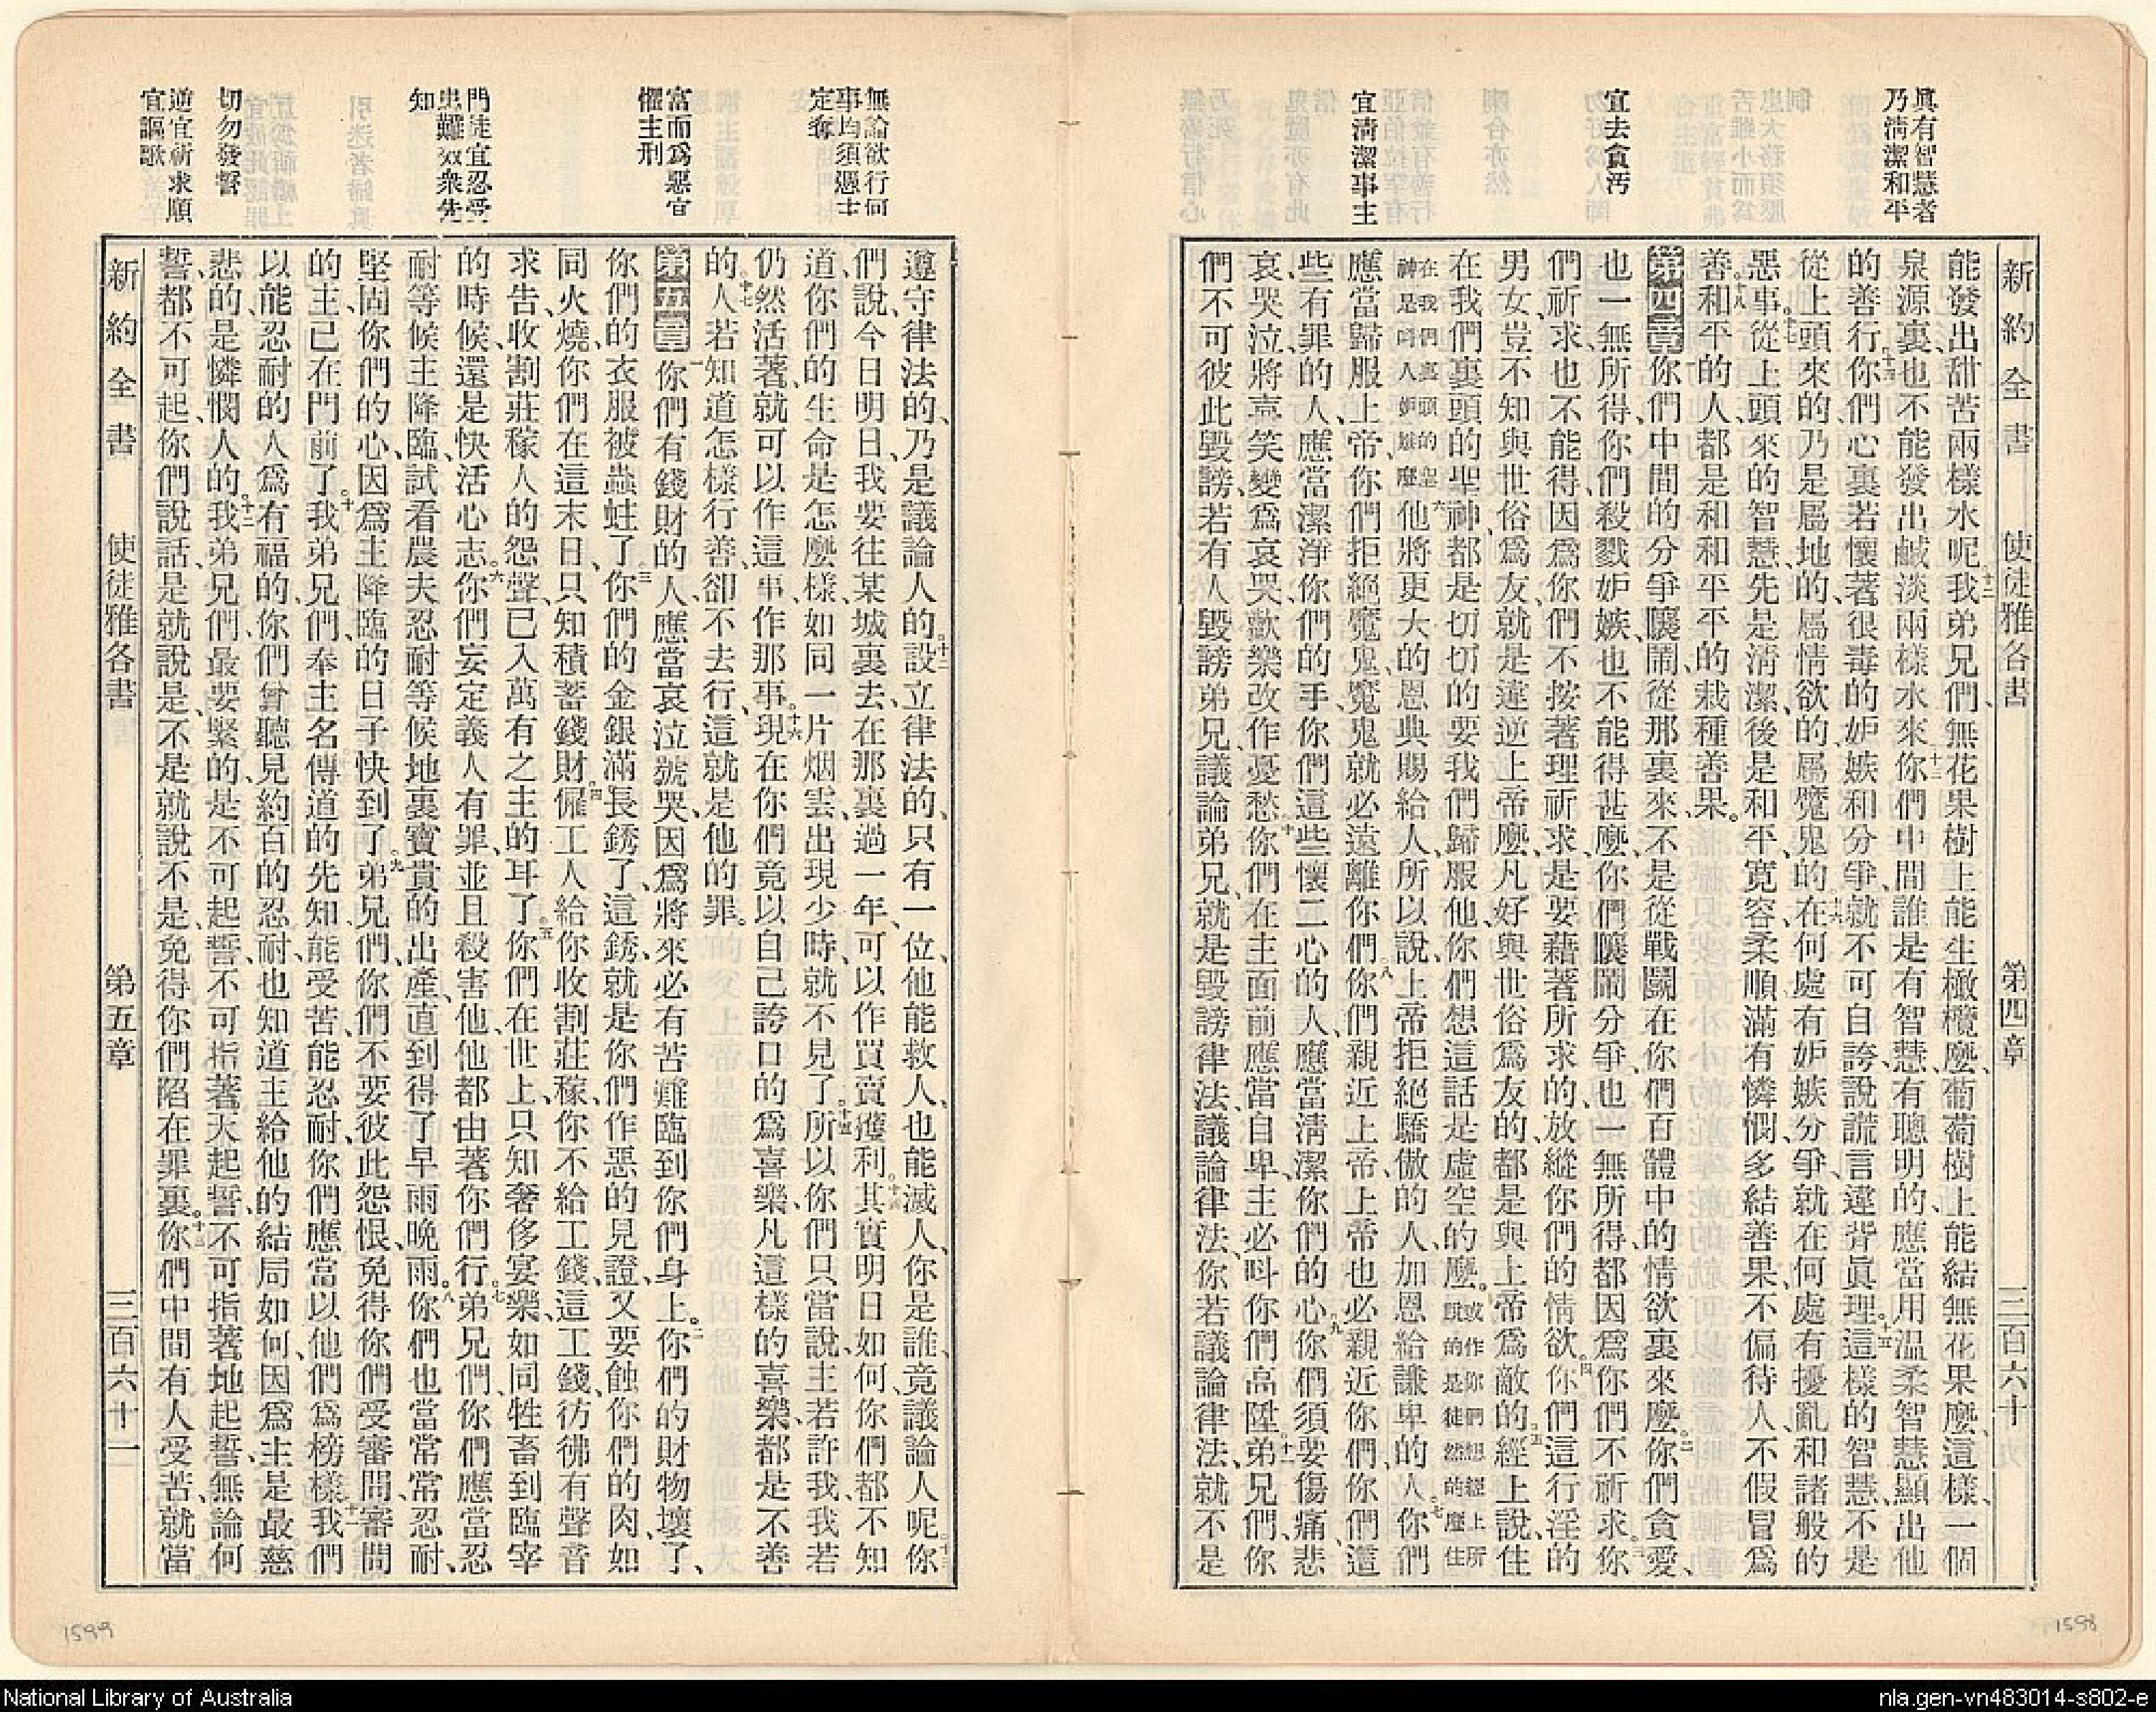 眞有智慧者
乃淸潔和平
宜去貪汚
宜淸潔事主
新約全書 使徒雅各書 第四章 三百六十
能發出甜苦兩樣水呢十二我弟兄們、無花果樹上能生橄欖麽、葡萄樹上能結無花果麽、這樣、一個
泉源裏、也不能發出鹹淡兩樣水來、十三你們中間誰是有智慧、有聰明的、應當用温柔智慧、顯出他
的善行、十四你們心裏若懷著很毒的妒嫉和分爭、就不可自誇說謊言違背眞理。十五這樣的智慧、不是
從上頭來的、乃是屬地的、屬情欲的、屬魔鬼的、十六在何處有妒嫉分爭、就在何處有擾亂和諸般的
惡事。十七從上頭來的智慧、先是淸潔、後是和平、寛容、柔順、滿有憐憫、多結善果、不偏待人、不假冒爲
善。十八和平的人、都是和和平平的栽種善果。
第四章 一你們中間的分爭嚷鬧、從那裏來、不是從戰鬬在你們百體中的情欲裏來麽。二你們貪愛、
也一無所得、你們殺戮妒嫉、也不能得甚麽、你們嚷鬧分爭、也一無所得、都因爲你們不祈求。三你
們祈求、也不能得、因爲你們不按著理祈求、是要藉著所求的、放縱你們的情欲。四你們這行淫的
男女、豈不知與世俗爲友、就是違逆上帝麽、凡好與世俗爲友的、都是與上帝爲敵的。五經上說、住
在我們裏頭的聖神、都是切切的要我們歸服他、你們想這話是虛空的麽。或作你們想經上所說的是徒然的麽住
在我們裏頭的聖神是呌人妒嫉麽六他將更大的恩典賜給人、所以說、上帝拒絕驕傲的人、加恩給謙卑的人。七你們
應當歸服上帝、你們拒絕魔鬼、魔鬼就必遠離你們。八你們親近上帝、上帝也必親近你們、你們這
些有罪的人、應當潔淨你們的手、你們這些懷二心的人、應當淸潔你們的心、九你們須要傷痛、悲
哀、哭泣、將喜笑變爲哀哭、歡樂改作憂愁、十你們在主面前應當自卑、主必呌你們高陞。十一弟兄們、你
們不可彼此毀謗、若有人毀謗弟兄、議論弟兄、就是毀謗律法、議論律法、你若議論律法、就不是
1598
無論欲行何
事均須慿主
定奪
富而爲惡宜
懼主刑
門徒宜忍受
患難效衆先
知
切勿發誓
逆宜祈求順
宜謳歌
遵守律法的、乃是議論人的。十二設立律法的、只有一位、他能救人、也能滅人、你是誰、竟議論人呢。十三你
們說、今日明日、我要往某城裏去、在那裏過一年、可以作買賣獲利。十四其實明日如何、你們都不知
道、你們的生命是怎麼樣、如同一片烟雲、出現少時、就不見了。十五所以你們只當說、主若許我、我若
仍然活著、就可以作這事、作那事。十六現在你們竟以自己誇口的爲喜樂、凡這樣的喜樂、都是不善
的。十七人若知道怎樣行善、卻不去行、這就是他的罪。
第五章 一你們有錢財的人、應當哀泣號哭、因爲將來必有苦難臨到你們身上。二你們的財物壞了、
你們的衣服被蟲蛀了。三你們的金銀滿長銹了、這銹就是你們作惡的見證、又要蝕你們的肉、如
同火燒、你們在這末日、只知積蓄錢財。四僱工人給你收割莊稼、你不給工錢、這工錢彷彿有聲音
求告、收割莊稼人的怨聲、已入萬有之主的耳了。五你們在世上、只知奢侈宴樂、如同牲畜到臨宰
的時候、還是快活心志。六你們妄定義人有罪、並且殺害他、他都由著你們行。七弟兄們、你們應當忍
耐等候主降臨、試看農夫忍耐等候地裏寶貴的出產、直到得了早雨晚雨。八你們也當常常忍耐、
堅固你們的心、因爲主降臨的日子快到了。九弟兄們、你們不要彼此怨恨、免得你們受審問、審問
的主已在門前了。十我弟兄們、奉主名傳道的先知、能受苦、能忍耐、你們應當以他們爲榜樣。十一我們
以能忍耐的人爲有福的、你們曾聽見約百的忍耐、也知道主給他的結局如何、因爲主是最慈
悲的、是憐憫人的。十二我弟兄們、最要緊的、是不可起誓、不可指著天起誓、不可指著地起誓、無論何
誓都不可起、你們說話、是就說是、不是就說不是、免得你們陷在罪裏。十三你們中間有人受苦、就當
新約全書 使徒雅各書 第五章 三百六十一
1599
National Library of Australia
nla.gen-vn483014-s802-e